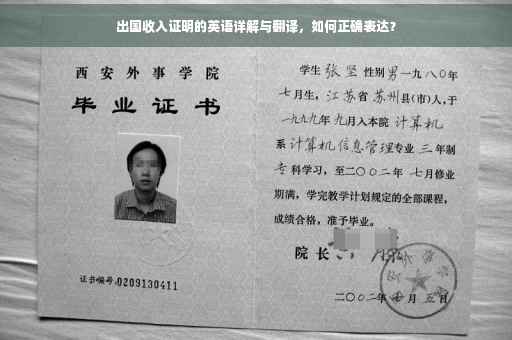 出国收入证明的英语详解与翻译，如何正确表达？
西安外事学院
毕业证书
证书编号:0209130411
学生 张坚 性别男一九八〇年
七月生，江苏省 苏州县(市)人，于
一九九九年 九月入本院 计算机
系 计算机信息管理专业 三 年制
专 科学习，至二〇〇二年 七月修业
期满，学完教学计划规定的全部课程，
成绩合格，准予毕业。
院长
二〇〇二年 七 月 五 日